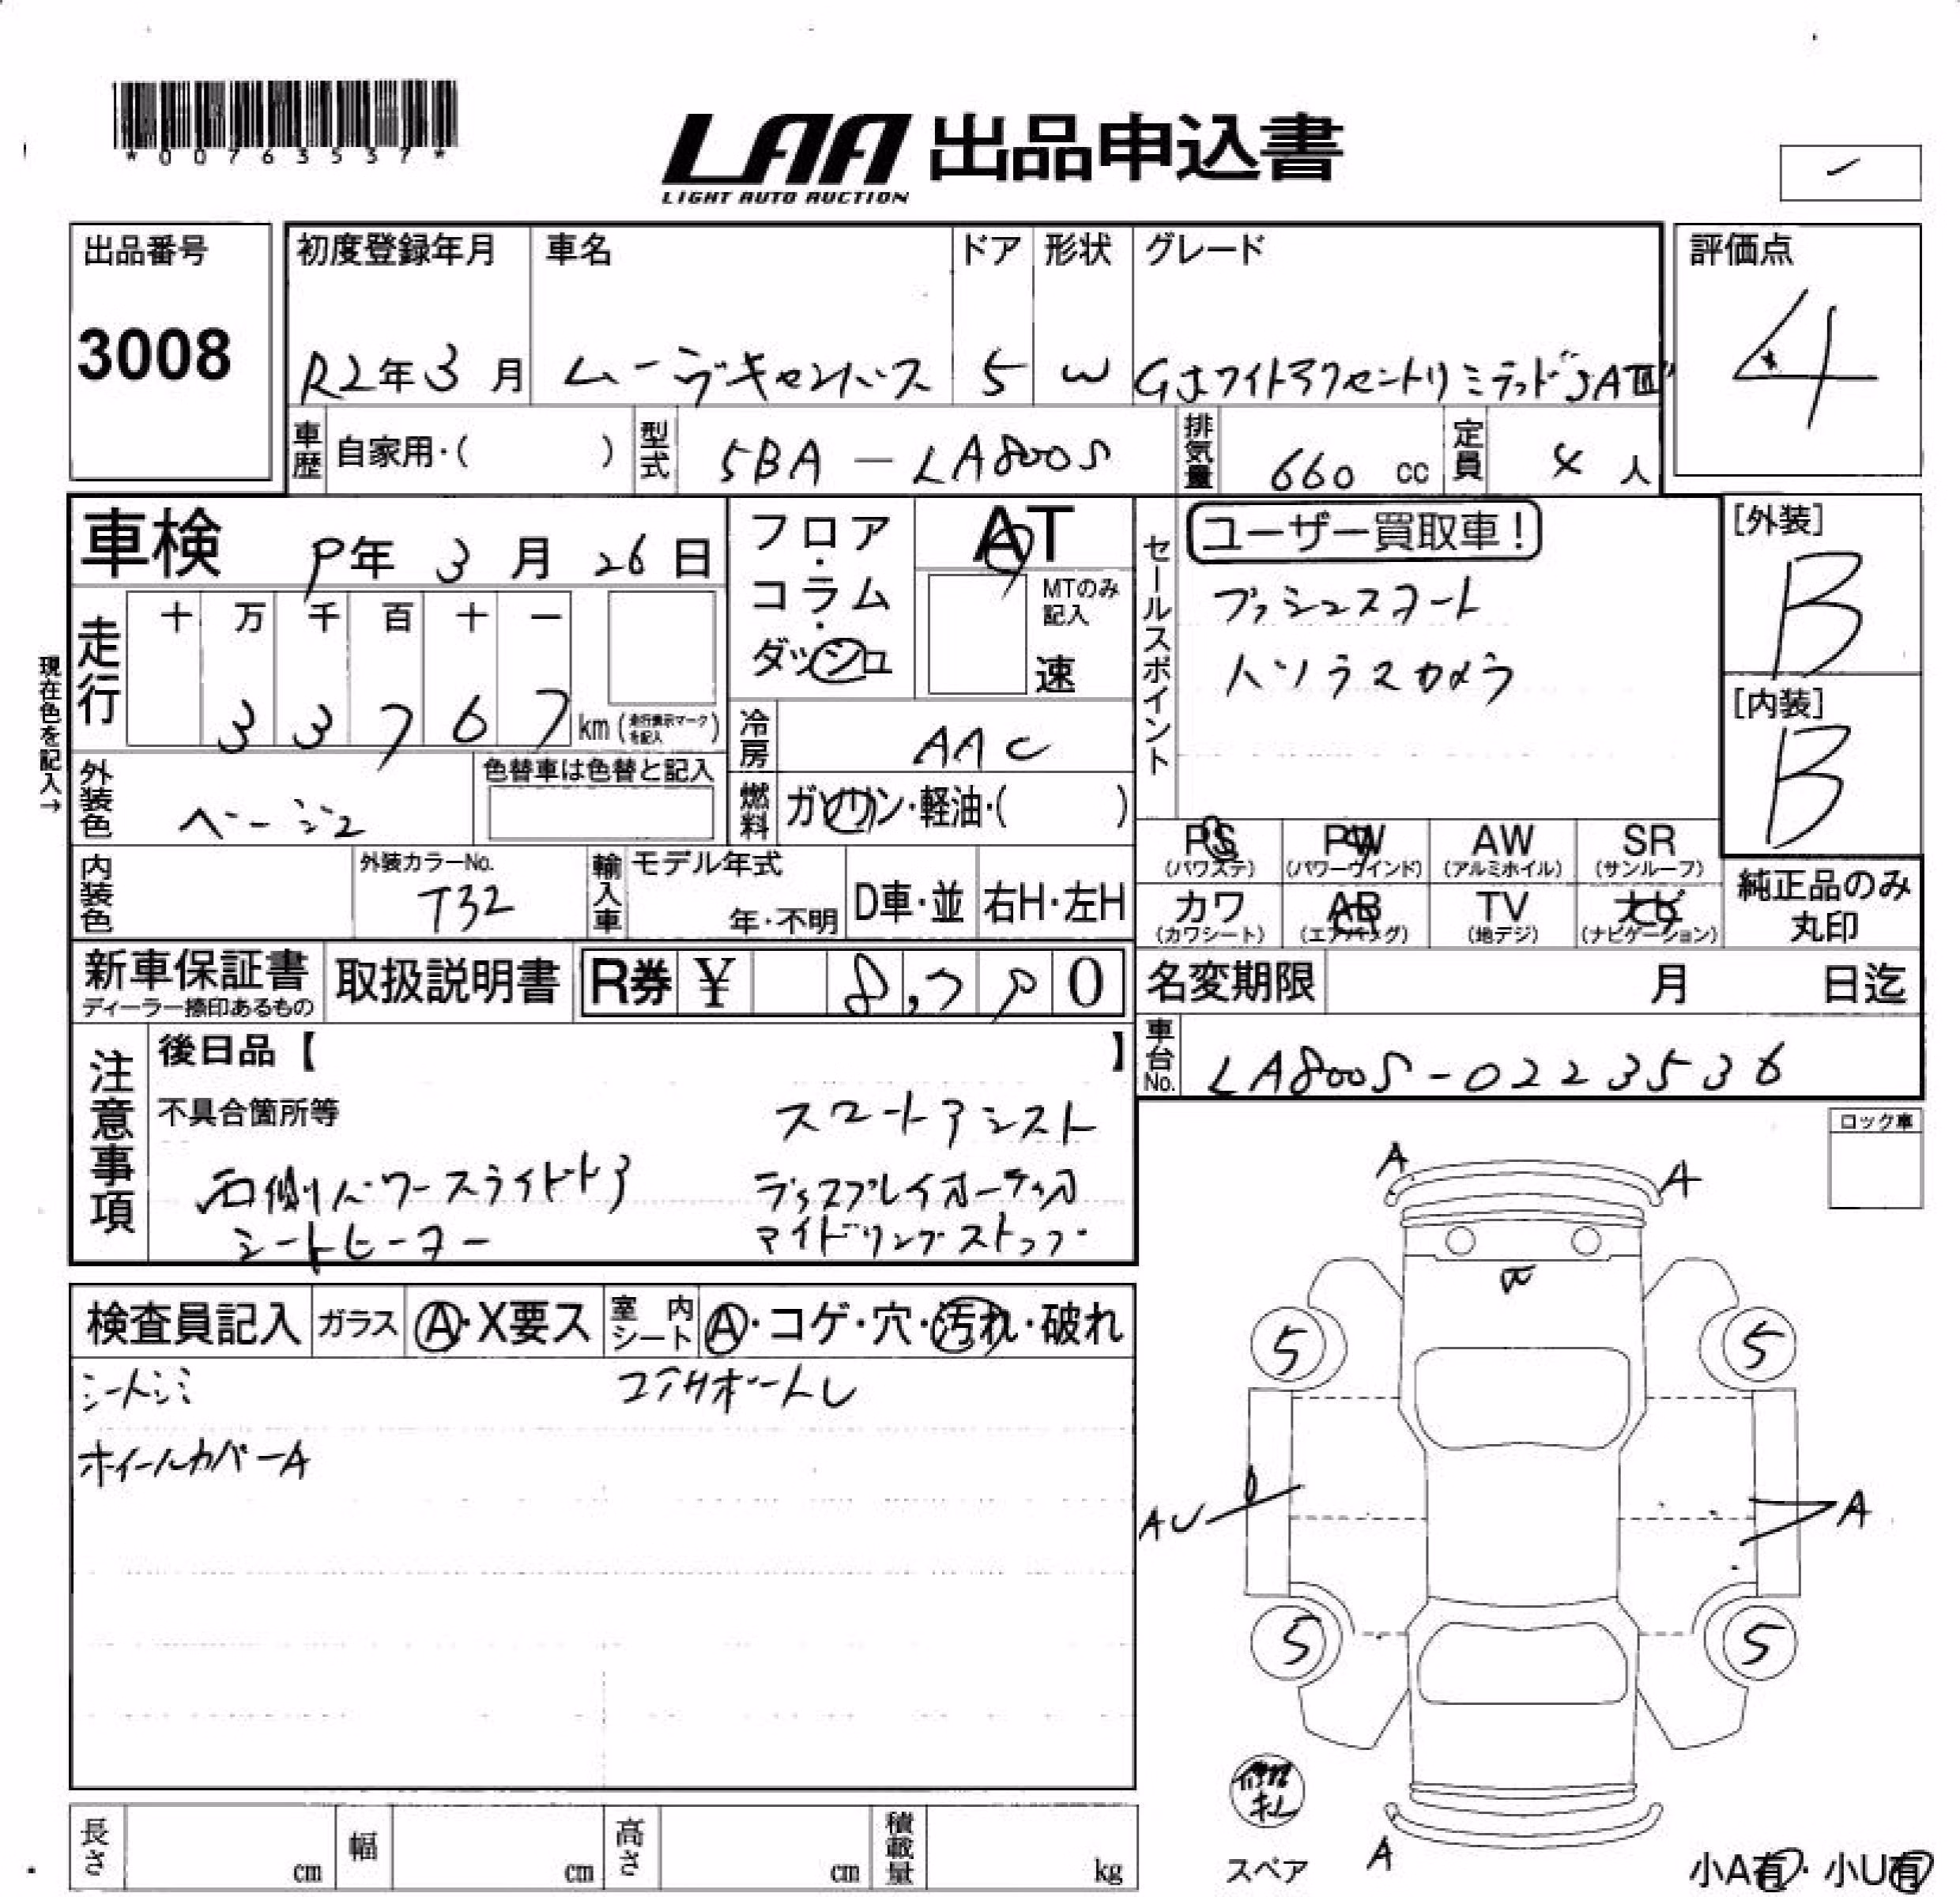 *00763537*
LAA 出品申込書
LIGHT AUTO AUCTION
出品番号
3008
初度登録年月
R2年3月
車名
ムーヴキャンバス
ドア
5
形状
W
グレード
Gホワイトアクセントリミテッド SAⅢ
評価点
4
車歴
自家用・( )
型式
5BA-LA800S
排気量
660 cc
定員
4人
車検 9年3月26日
フロア・コラム・ダッシュ
AT
MTのみ記入
速
セールスポイント
ユーザー買取車!
プッシュスタート
パノラマカメラ
[外装]
B
[内装]
B
現在色を記入→
走行
十 万 千 百 十 一
3 3 7 6 7 km (走行表示マークを記入)
冷房
AAC
外装色
ベージュ
色替車は色替と記入
燃料
ガソリン・軽油・( )
PS
(パワステ)
PW
(パワーウインド)
AW
(アルミホイル)
SR
(サンルーフ)
内装色
外装カラーNo.
T32
輸入車
モデル年式
年・不明
D車・並
右H・左H
カワ
(カワシート)
AB
(エアバッグ)
TV
(地デジ)
ナビ
(ナビゲーション)
純正品のみ
丸印
新車保証書
ディーラー捺印あるもの
取扱説明書
R券 ¥ 8,790
名変期限 月 日迄
車台No.
LA800S-0223536
注意事項
後日品【 】
不具合箇所等
スマートアシスト
右側パワースライドドア
ディスプレイオーディオ
シートヒーター
アイドリングストップ
ロック車
A
A
検査員記入
ガラス
A・X要ス
室内シート
A・コゲ・穴・汚れ・破れ
シートシミ
コアサポートL
ホイールカバーA
5
5
AU
A
5
5
長さ cm
幅 cm
高さ cm
積載量 kg
スペア
A
小A有・小U有